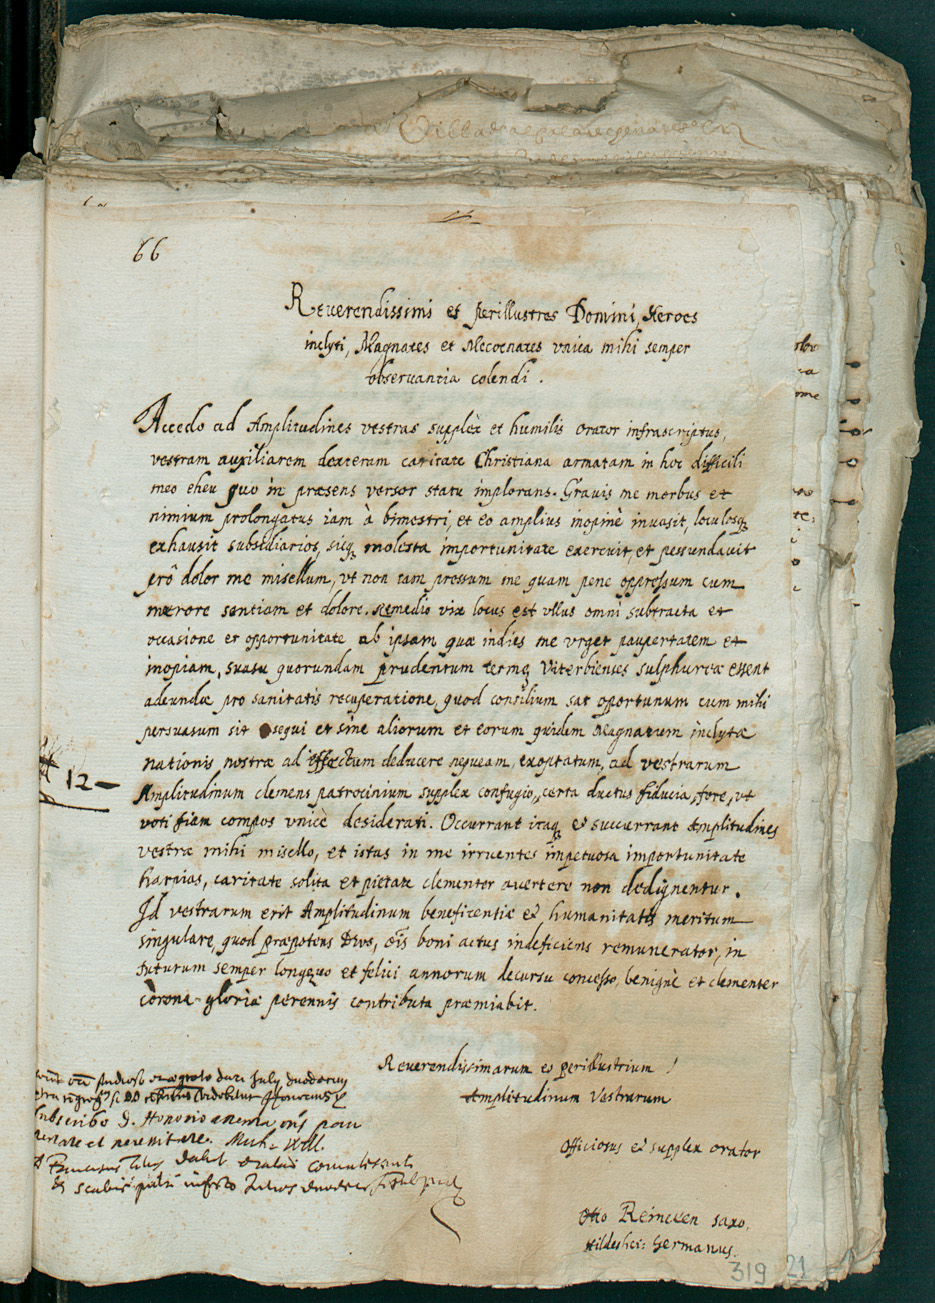 66
Reverendissimi et perillustres Domini, Heroes
inclyti, Magnates et Mecoenates vnica mihi semper
obseruantia colendi.
Accedo ad Amplitudines vestras supplex et humilis orator infrascriptus,
vestram auxiliarem dexteram caritate Christiana armatam in hoc difficili
meo eheu quo in praesens versor statu implorans. Grauis me morbus et
nimium prolongatus iam à bimestri, et eo amplius inopinè inuasit, loculosq
exhausit subsidiarios, sicq molesta importunitate exercuit, et pessundauit
prô dolor me misellum, vt non tam pressum me quam pene oppressum cum
maerore sentiam et dolore. Remedio vix locus est vllus omni subtracta et
occasione et opportunitate ob ipsam quae indies me vrget paupertatem et
inopiam, suasu quorundam prudentum termę Viterbienses sulphureae essent
adeundae pro sanitatis recuperatione, quod consilium sat oportunum cum mihi
persuasum sit sequi et sine aliorum et eorum quidem Magnatum inclytae
nationis nostrae ad effectum deducere nequeam, exoptatum, ad vestrarum
12
Amplitudinum clemens patrocinium supplex confugio, certa ductus fiducia, fore, vt
voti fiam compos vnicè desiderati. Occurrant itaq et succurrant Amplitudines
vestrae mihi misello, et istas in me irruentes impetuosa importunitate
harpias, caritate solita et pietate clementer auertere non dedignentur.
Id vestrarum erit Amplitudinum beneficentiae et humanitatis meritum
singulare, quod praepotens Deus, ois boni actus indeficiens remunerator, in
futurum semper longęuo et felici annorum decursu concesso, benignè et clementer
corona gloriae perennis contributa praemiabit.
Reverendissimarum et perillustrium
Amplitudinum Vestrarum
Officiosus et supplex orator
Otto Reineken saxo.
Hildeshei: Germanus.
studioso aegroto dari July duodecim
subscribo D. Honorio
et
Julios duodecim
319 21